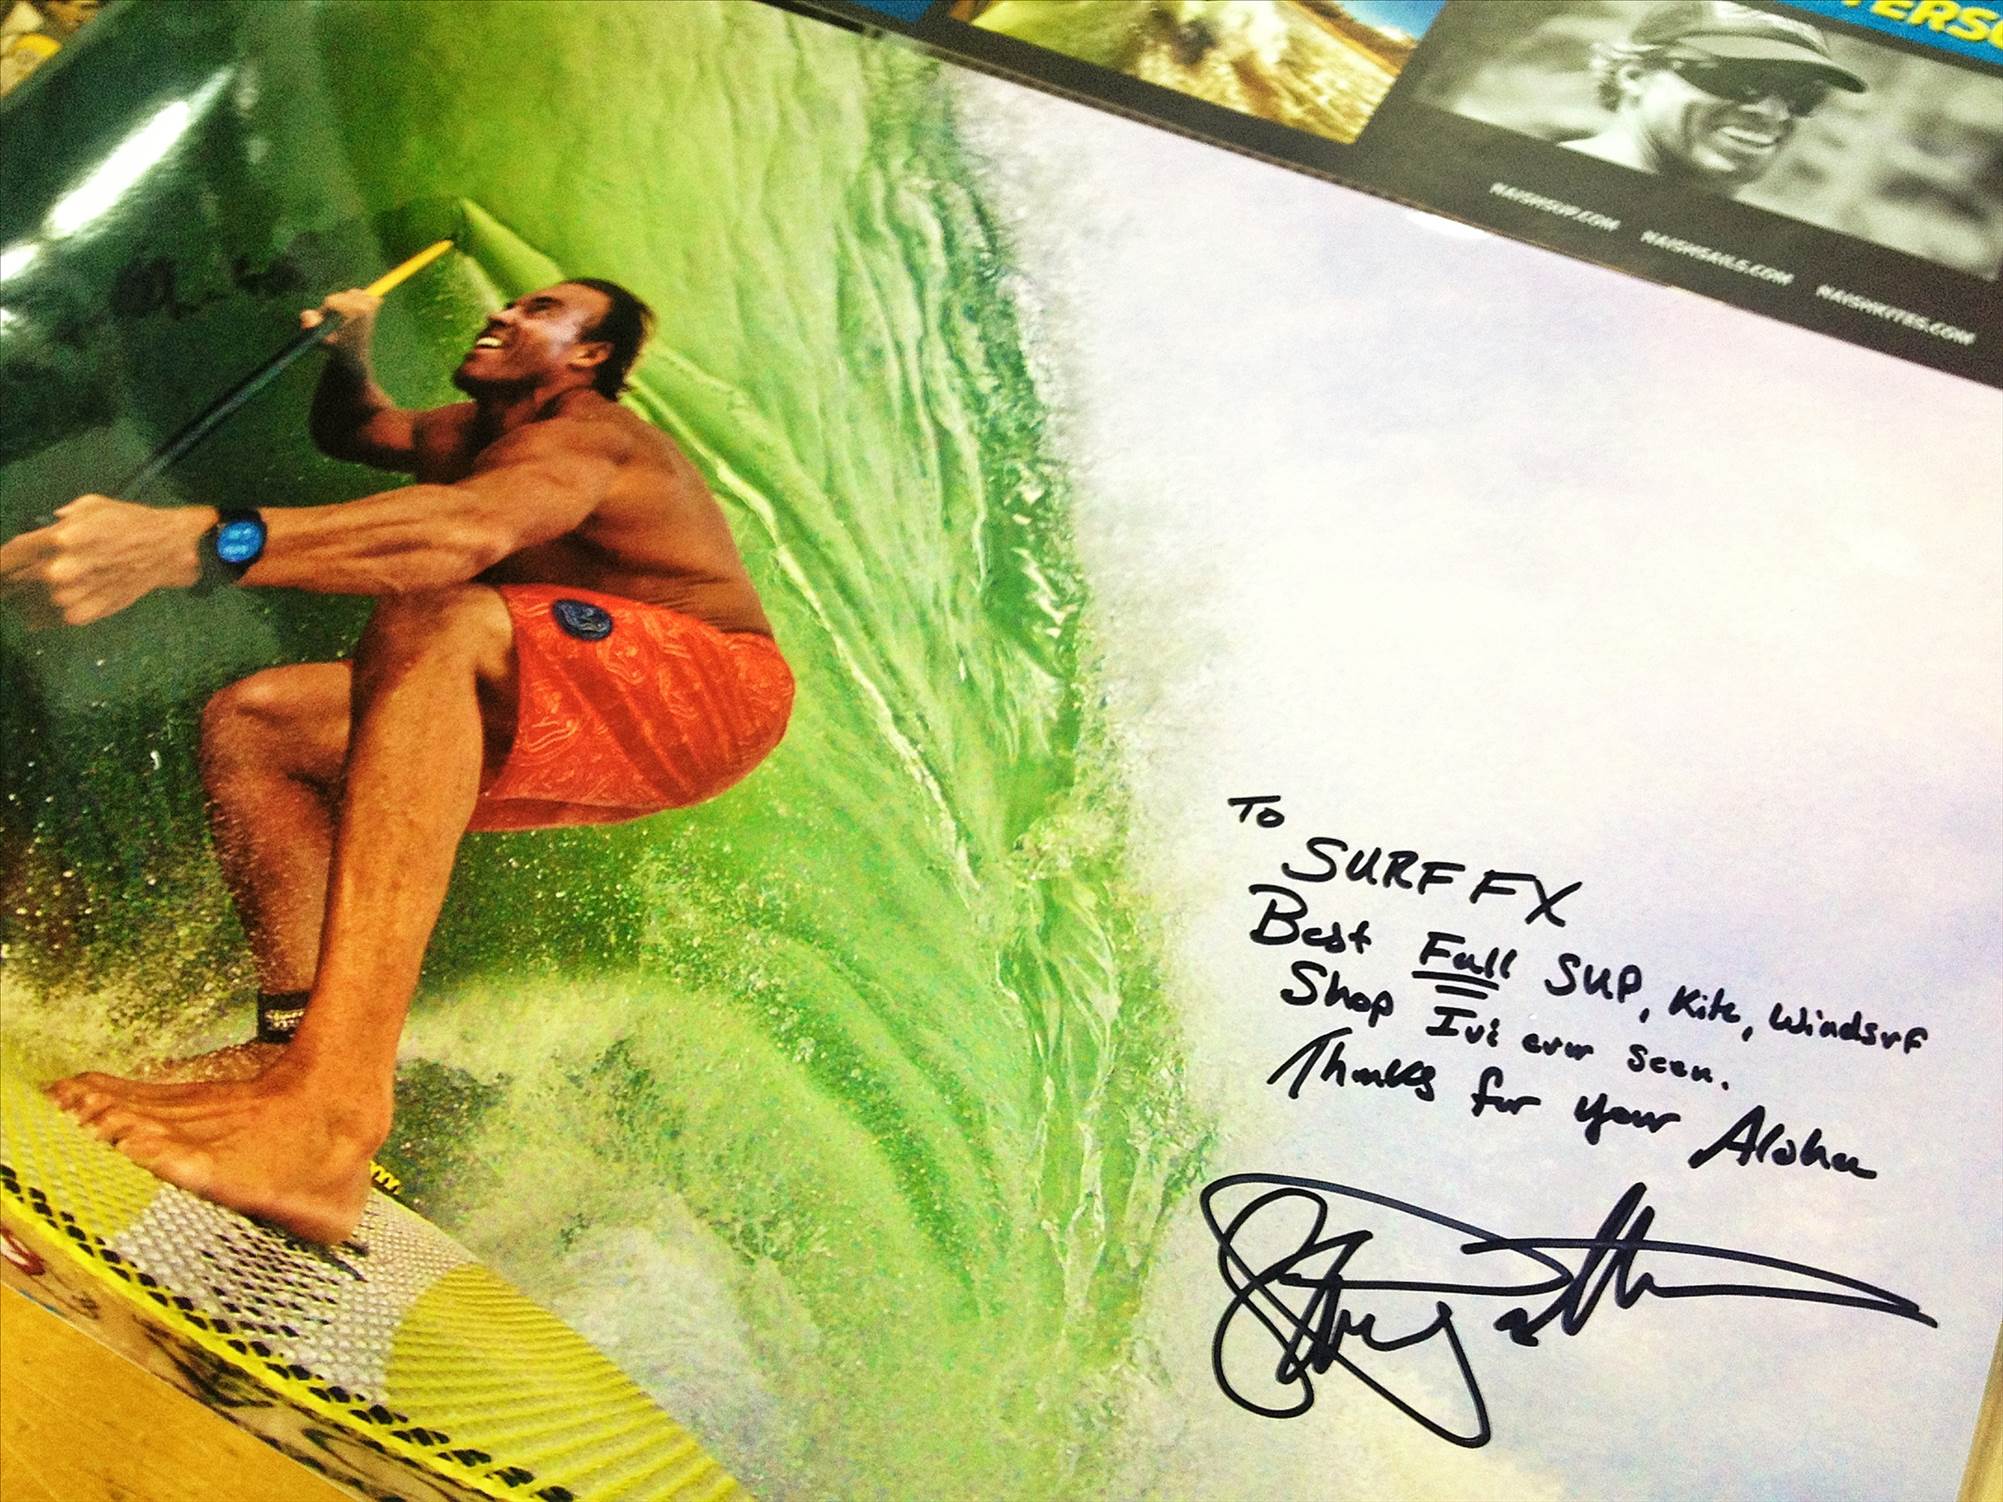 TERSO
NAISHSUP.COM NAISHSAILS.COM NAISHKITES.COM
To
SURF FX
Best Full SUP, Kite, Windsurf
Shop I've ever seen.
Thanks for your Aloha